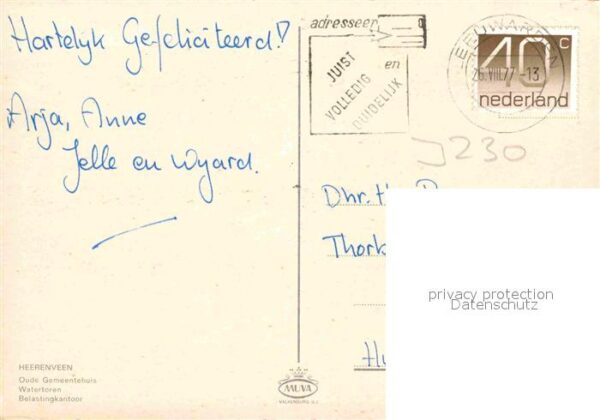 Hartelyk Gefeliciteerd!
Arja, Anne
Jelle en Wyard.
adresseer
JUIST
en
VOLLEDIG
DUIDELIJK
LEEUWARDEN
26.VIII.77-13
40c
nederland
J230
Dhr.
Thork
privacy protection
Datenschutz
HEERENVEEN
Oude Gemeentehuis
Watertoren
Belastingkantoor
MUVA
VALKENBURG